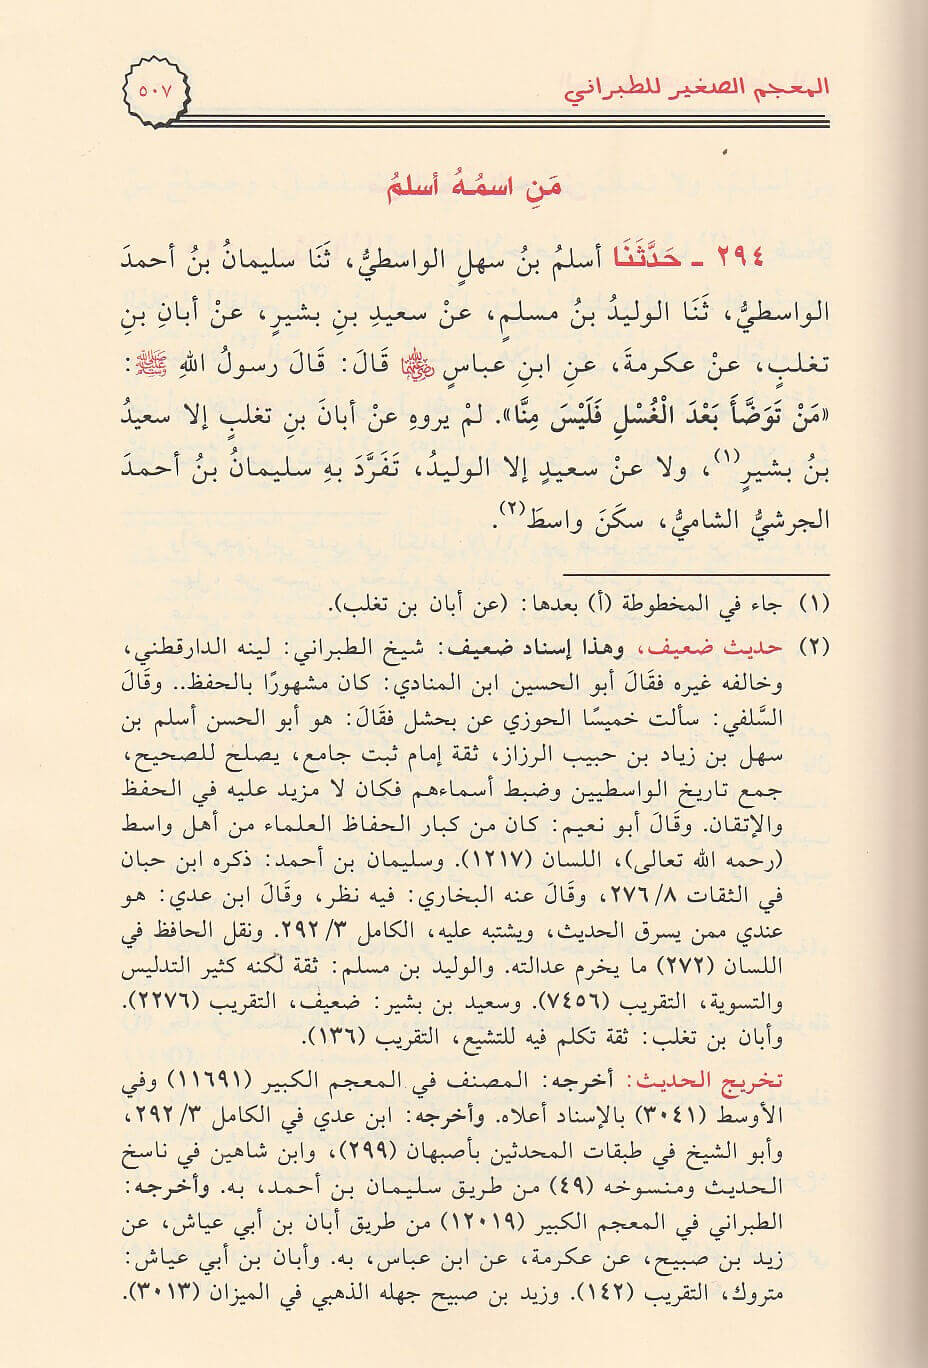 المعجم الصغير للطبراني
٥٠٧
مَنِ اسمُهُ أسلمُ
٢٩٤ ـ حَدَّثَنَا أسلمُ بنُ سهلٍ الواسطيُّ، ثَنَا سليمانُ بنُ أحمدَ
الواسطيُّ، ثَنَا الوليدُ بنُ مسلمٍ، عنْ سعيدِ بنِ بشيرٍ، عنْ أبانِ بنِ
تغلبٍ، عنْ عكرمةَ، عنِ ابنِ عباسٍ رضي الله عنهما قَالَ: قَالَ رسولُ اللهِ ﷺ:
«مَنْ تَوَضَّأَ بَعْدَ الْغُسْلِ فَلَيْسَ مِنَّا». لمْ يروهِ عنْ أبانَ بنِ تغلبٍ إلا سعيدُ
بنُ بشيرٍ(١)، ولا عنْ سعيدٍ إلا الوليدُ، تَفَرَّدَ بهِ سليمانُ بنُ أحمدَ
الجرشيُّ الشاميُّ، سكَنَ واسطَ(٢).
(١) جاء في المخطوطة (أ) بعدها: (عن أبان بن تغلب).
(٢) حديث ضعيف، وهذا إسناد ضعيف: شيخ الطبراني: لينه الدارقطني،
وخالفه غيره فقَالَ أبو الحسين ابن المنادي: كان مشهورًا بالحفظ.. وقَالَ
السَّلفي: سألت خميسًا الحوزي عن بحشل فقَالَ: هو أبو الحسن أسلم بن
سهل بن زياد بن حبيب الرزاز، ثقة إمام ثبت جامع، يصلح للصحيح،
جمع تاريخ الواسطيين وضبط أسماءهم فكان لا مزيد عليه في الحفظ
والإتقان. وقَالَ أبو نعيم: كان من كبار الحفاظ العلماء من أهل واسط
(رحمه الله تعالى)، اللسان (١٢١٧). وسليمان بن أحمد: ذكره ابن حبان
في الثقات ٢٧٦/٨، وقَالَ عنه البخاري: فيه نظر، وقَالَ ابن عدي: هو
عندي ممن يسرق الحديث، ويشتبه عليه، الكامل ٢٩٢/٣. ونقل الحافظ في
اللسان (٢٧٢) ما يخرم عدالته. والوليد بن مسلم: ثقة لكنه كثير التدليس
والتسوية، التقريب (٧٤٥٦). وسعيد بن بشير: ضعيف، التقريب (٢٢٧٦).
وأبان بن تغلب: ثقة تكلم فيه للتشيع، التقريب (١٣٦).
تخريج الحديث: أخرجه: المصنف في المعجم الكبير (١١٦٩١) وفي
الأوسط (٣٠٤١) بالإسناد أعلاه. وأخرجه: ابن عدي في الكامل ٢٩٢/٣،
وأبو الشيخ في طبقات المحدثين بأصبهان (٢٩٩)، وابن شاهين في ناسخ
الحديث ومنسوخه (٤٩) من طريق سليمان بن أحمد، به. وأخرجه:
الطبراني في المعجم الكبير (١٢٠١٩) من طريق أبان بن أبي عياش، عن
زيد بن صبيح، عن عكرمة، عن ابن عباس، به. وأبان بن أبي عياش:
متروك، التقريب (١٤٢). وزيد بن صبيح جهله الذهبي في الميزان (٣٠١٣).